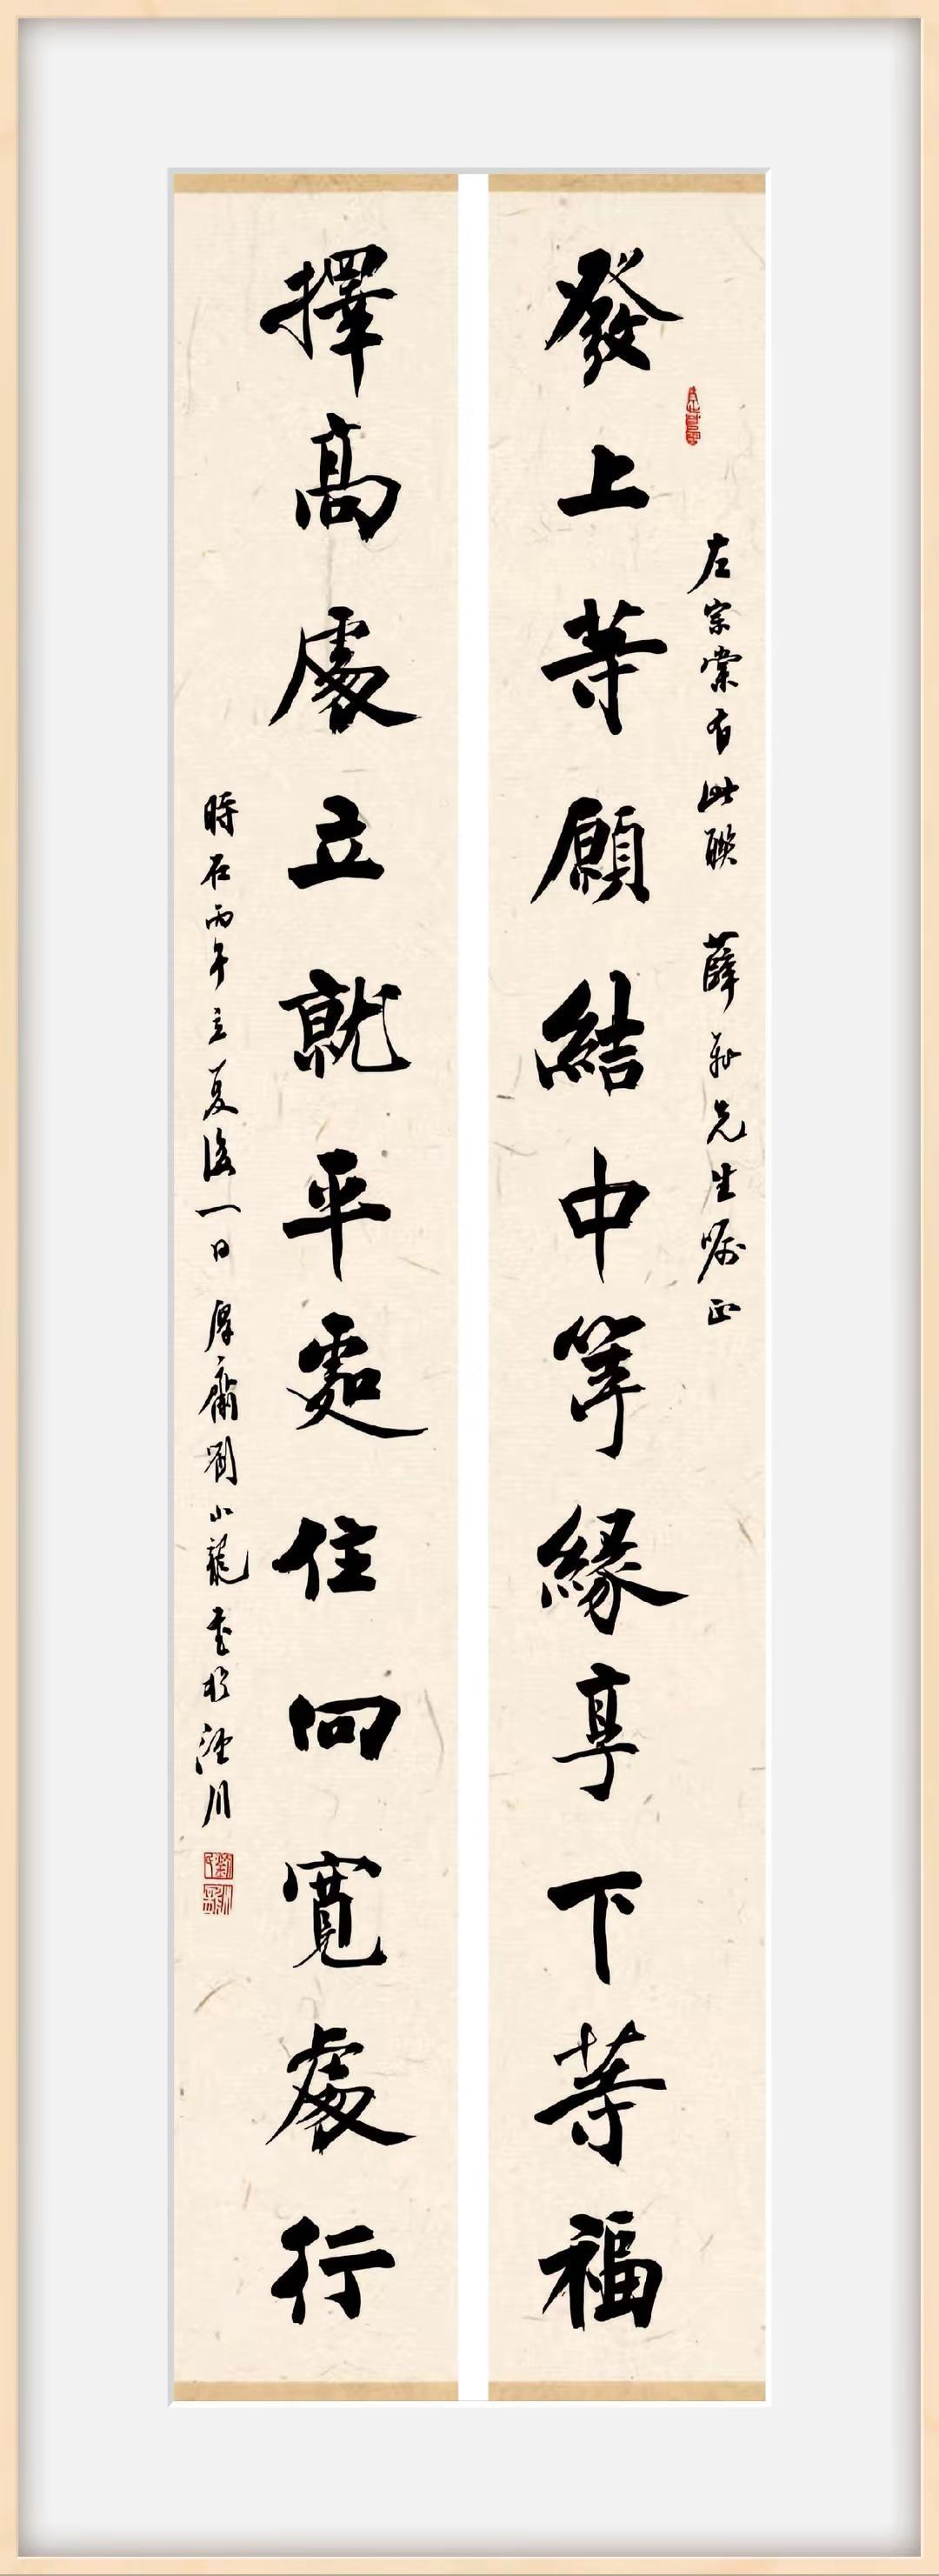 發上等願結中等緣享下等福
左宗棠有此聯 薛 先生嘱正
擇高處立就平處住向寬處行
時在丙午立夏後一日 厚庸劉小龍書於涇川